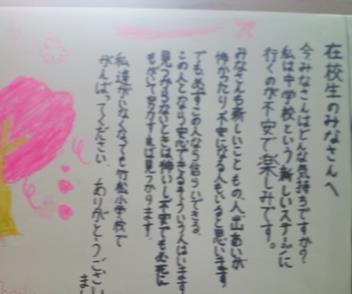 在校生のみなさんへ
今みなさんはどんな気持ちですか?
私は中学校という新しいステージに
行くのが不安で楽しみです。
みなさんも新しいこともの、人、出あいが
怖かったり不安になる人もいると思います
でも必ずこの人なら信らいできる、
この人となら安心できるそういう人はいます
見つからないときは怖いし不安でも必死に
もがいて努力すれば見つかります。
私達がいなくなっても竹松小学校で
がんばってください。ありがとうござい
ました